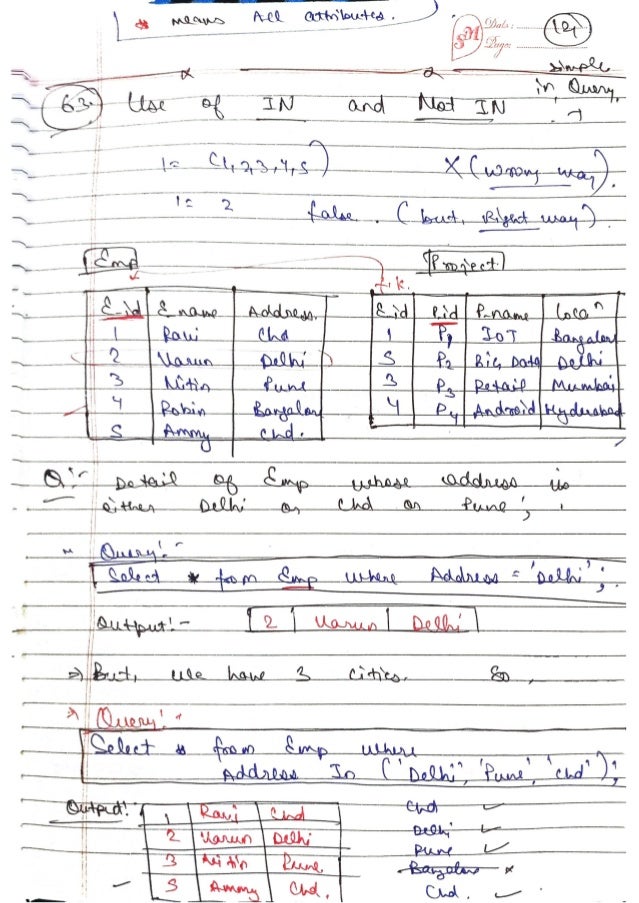 * means All attributes.
SM Date: 121
Page:
simple
in Query.
63. Use of IN and Not IN →
1= (1,2,3,4,5) X (wrong way).
1= 2 false. (but, Right way).
Emp Project
f.k.
E-id E name Address. Eid Pid P-name Locaⁿ
1 Ravi Chd 1 P1 IoT Bangalore
2 Varun Delhi 5 P2 Big Data Delhi
3 Nitin Pune 3 P3 Retail Mumbai
4 Robin Bangalore 4 P4 Android Hyderabad
5 Ammy Chd.
Q:- Detail of Emp whose address is
either Delhi or Chd or Pune;
Query:-
Select * from Emp where Address = 'Delhi';
Output:- 2 Varun Delhi
⇒ But, we have 3 cities. So,
Query:-
Select * from Emp where
Address In ('Delhi', 'Pune', 'Chd');
Output:- 1 Ravi Chd Chd ✓
2 Varun Delhi Delhi ✓
3 Nitin Pune Pune ✓
Bangalore ×
5 Ammy Chd. Chd. ✓